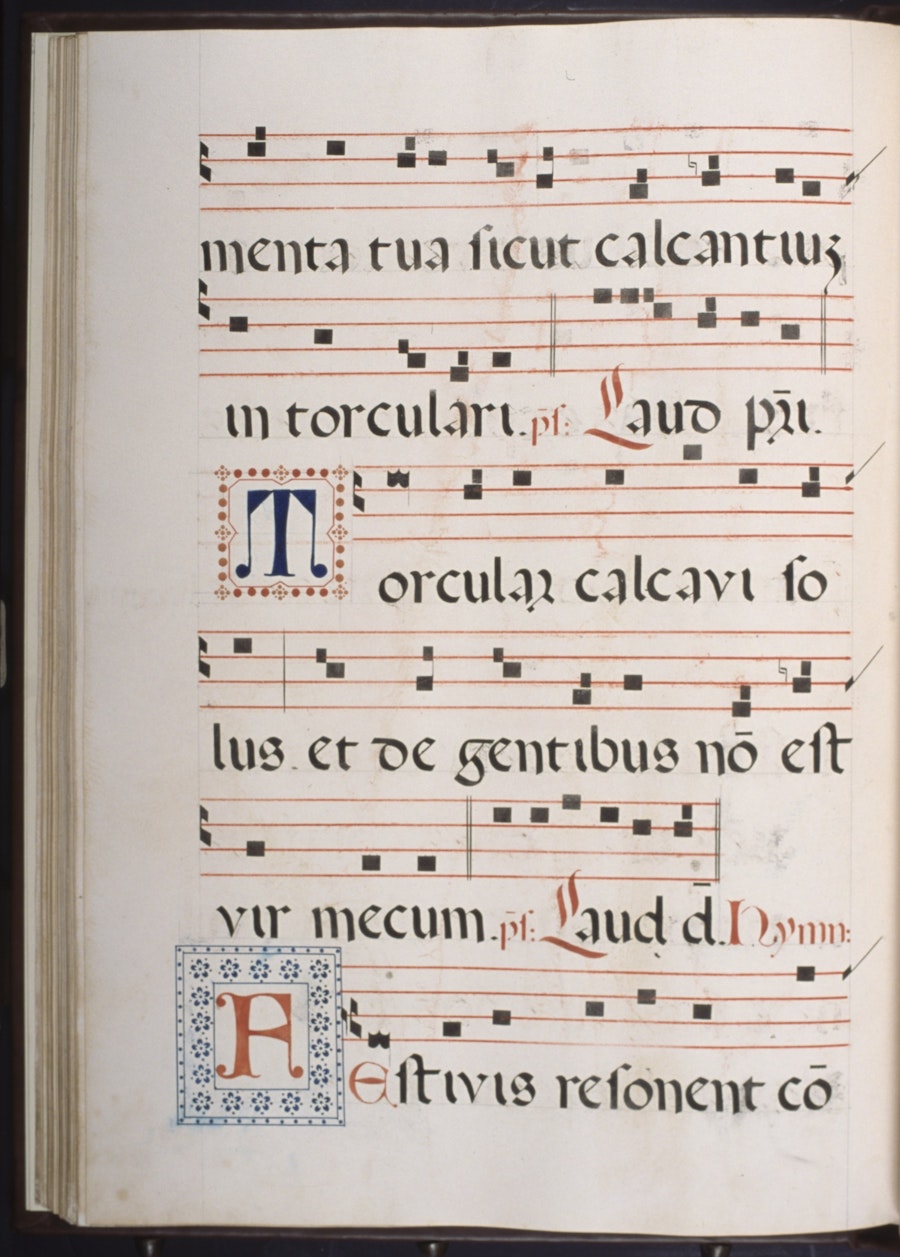 menta tua ſicut calcantiuꝫ
in torculari. p̄ſ: Laud pr̄i.
Torculaꝝ calcavi ſo
lus. et de gentibus nō eſt
vir mecum. p̄ſ: Laud d̄. Hymn:
AEſtivis reſonent cō